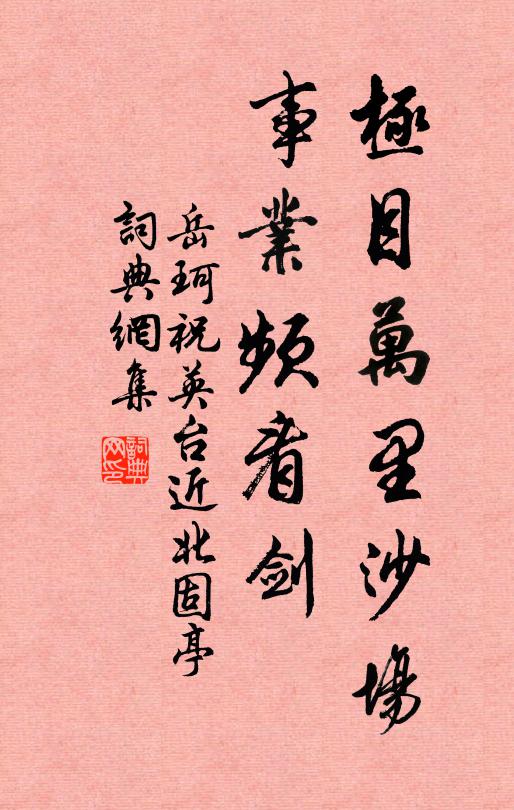 極目萬里沙場
事業頻看劍
岳珂祝英台近北固亭
詞典網集
詞典网印